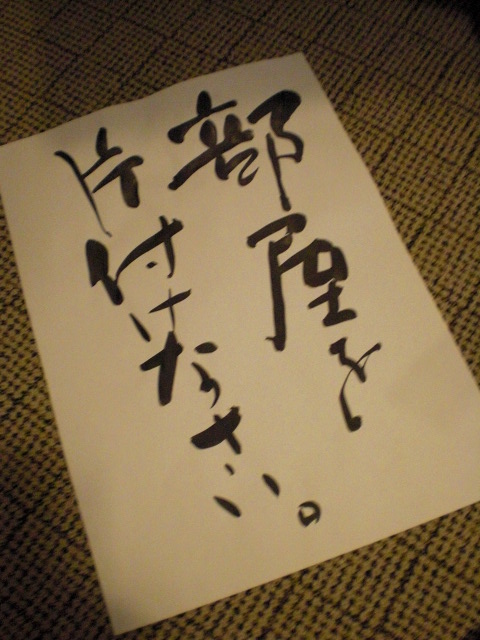 部屋を
片付けなさい。